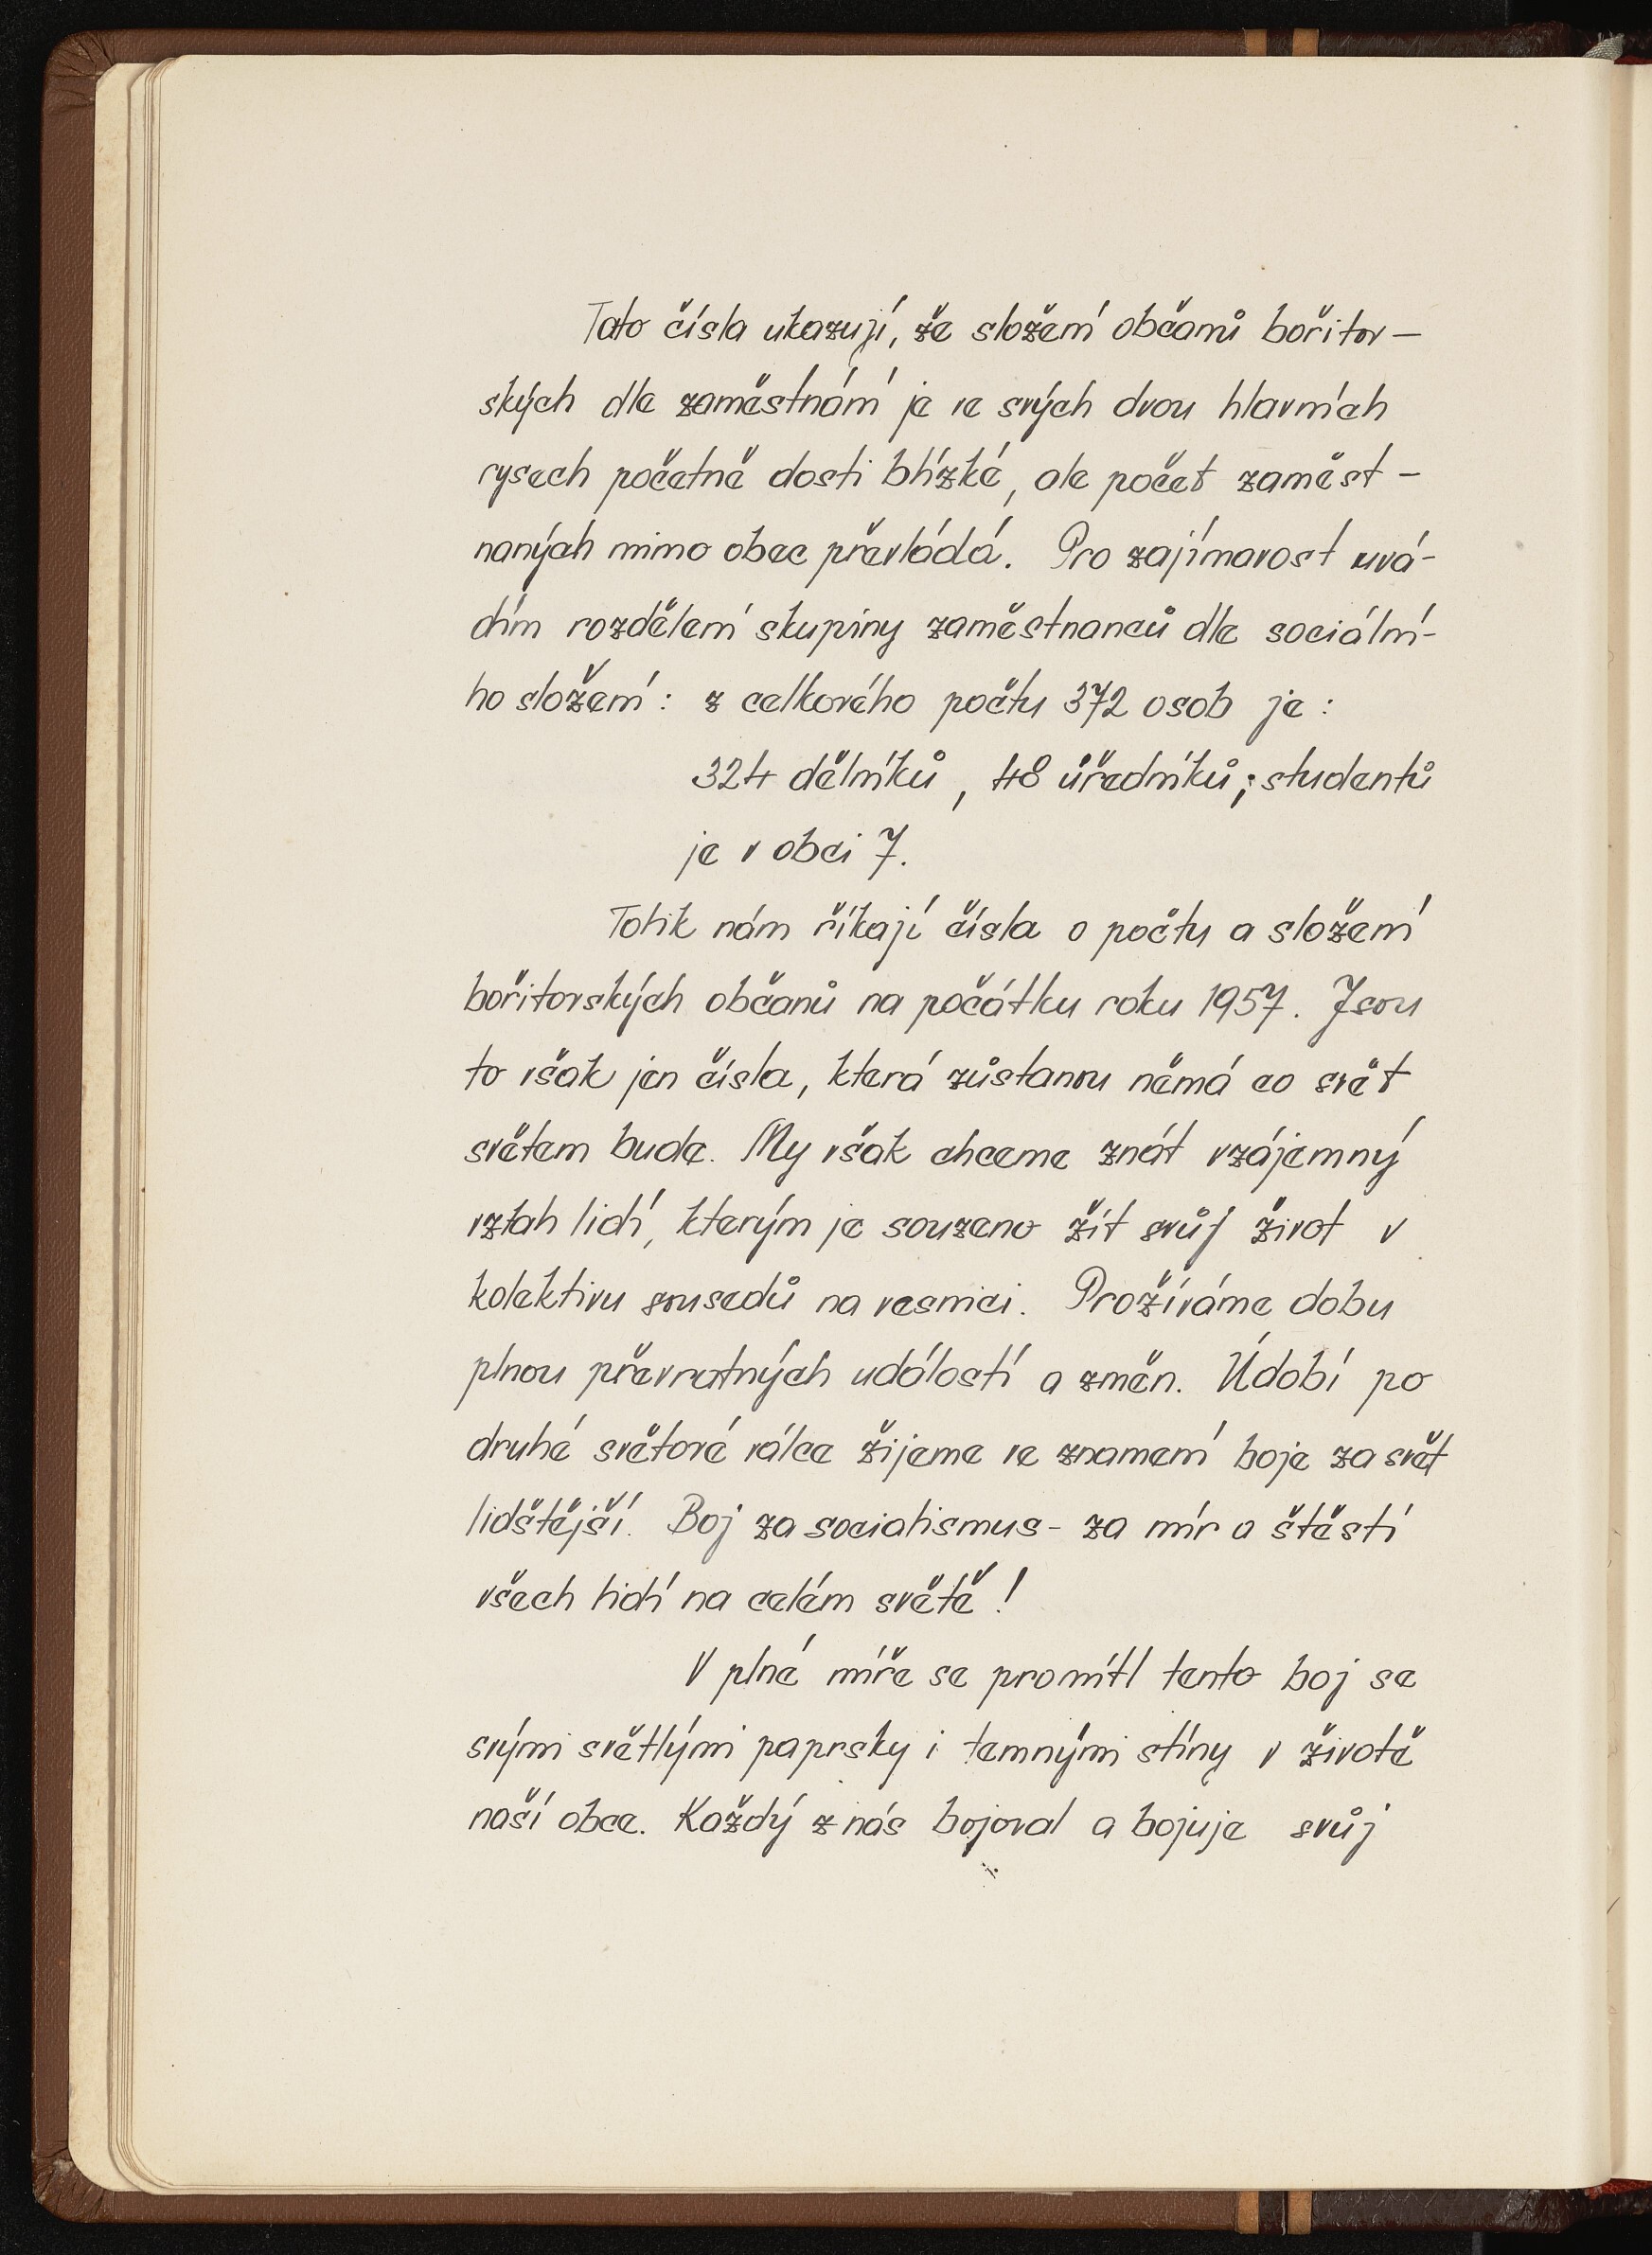 Tato čísla ukazují, že složení občanů bořitov-
ských dle zaměstnání je ve svých dvou hlavních
rysech početně dosti blízké, ale počet zaměst-
naných mimo obec převládá. Pro zajímavost uvá-
dím rozdělení skupiny zaměstnanců dle sociální-
ho složení: z celkového počtu 372 osob je:
324 dělníků, 48 úředníků; studentů
je v obci 7.
Tolik nám říkají čísla o počtu a složení
bořitovských občanů na počátku roku 1957. Jsou
to však jen čísla, která zůstanou němá co svět
světem bude. My však chceme znát vzájemný
vztah lidí, kterým je souzeno žít svůj život v
kolektivu sousedů na vesnici. Prožíváme dobu
plnou převratných událostí a změn. Údobí po
druhé světové válce žijeme ve znamení boje za svět
lidštější. Boj za socialismus - za mír a štěstí
všech lidí na celém světě!
V plné míře se promítl tento boj se
svými světlými paprsky i temnými stíny v životě
naší obce. Každý z nás bojoval a bojuje svůj